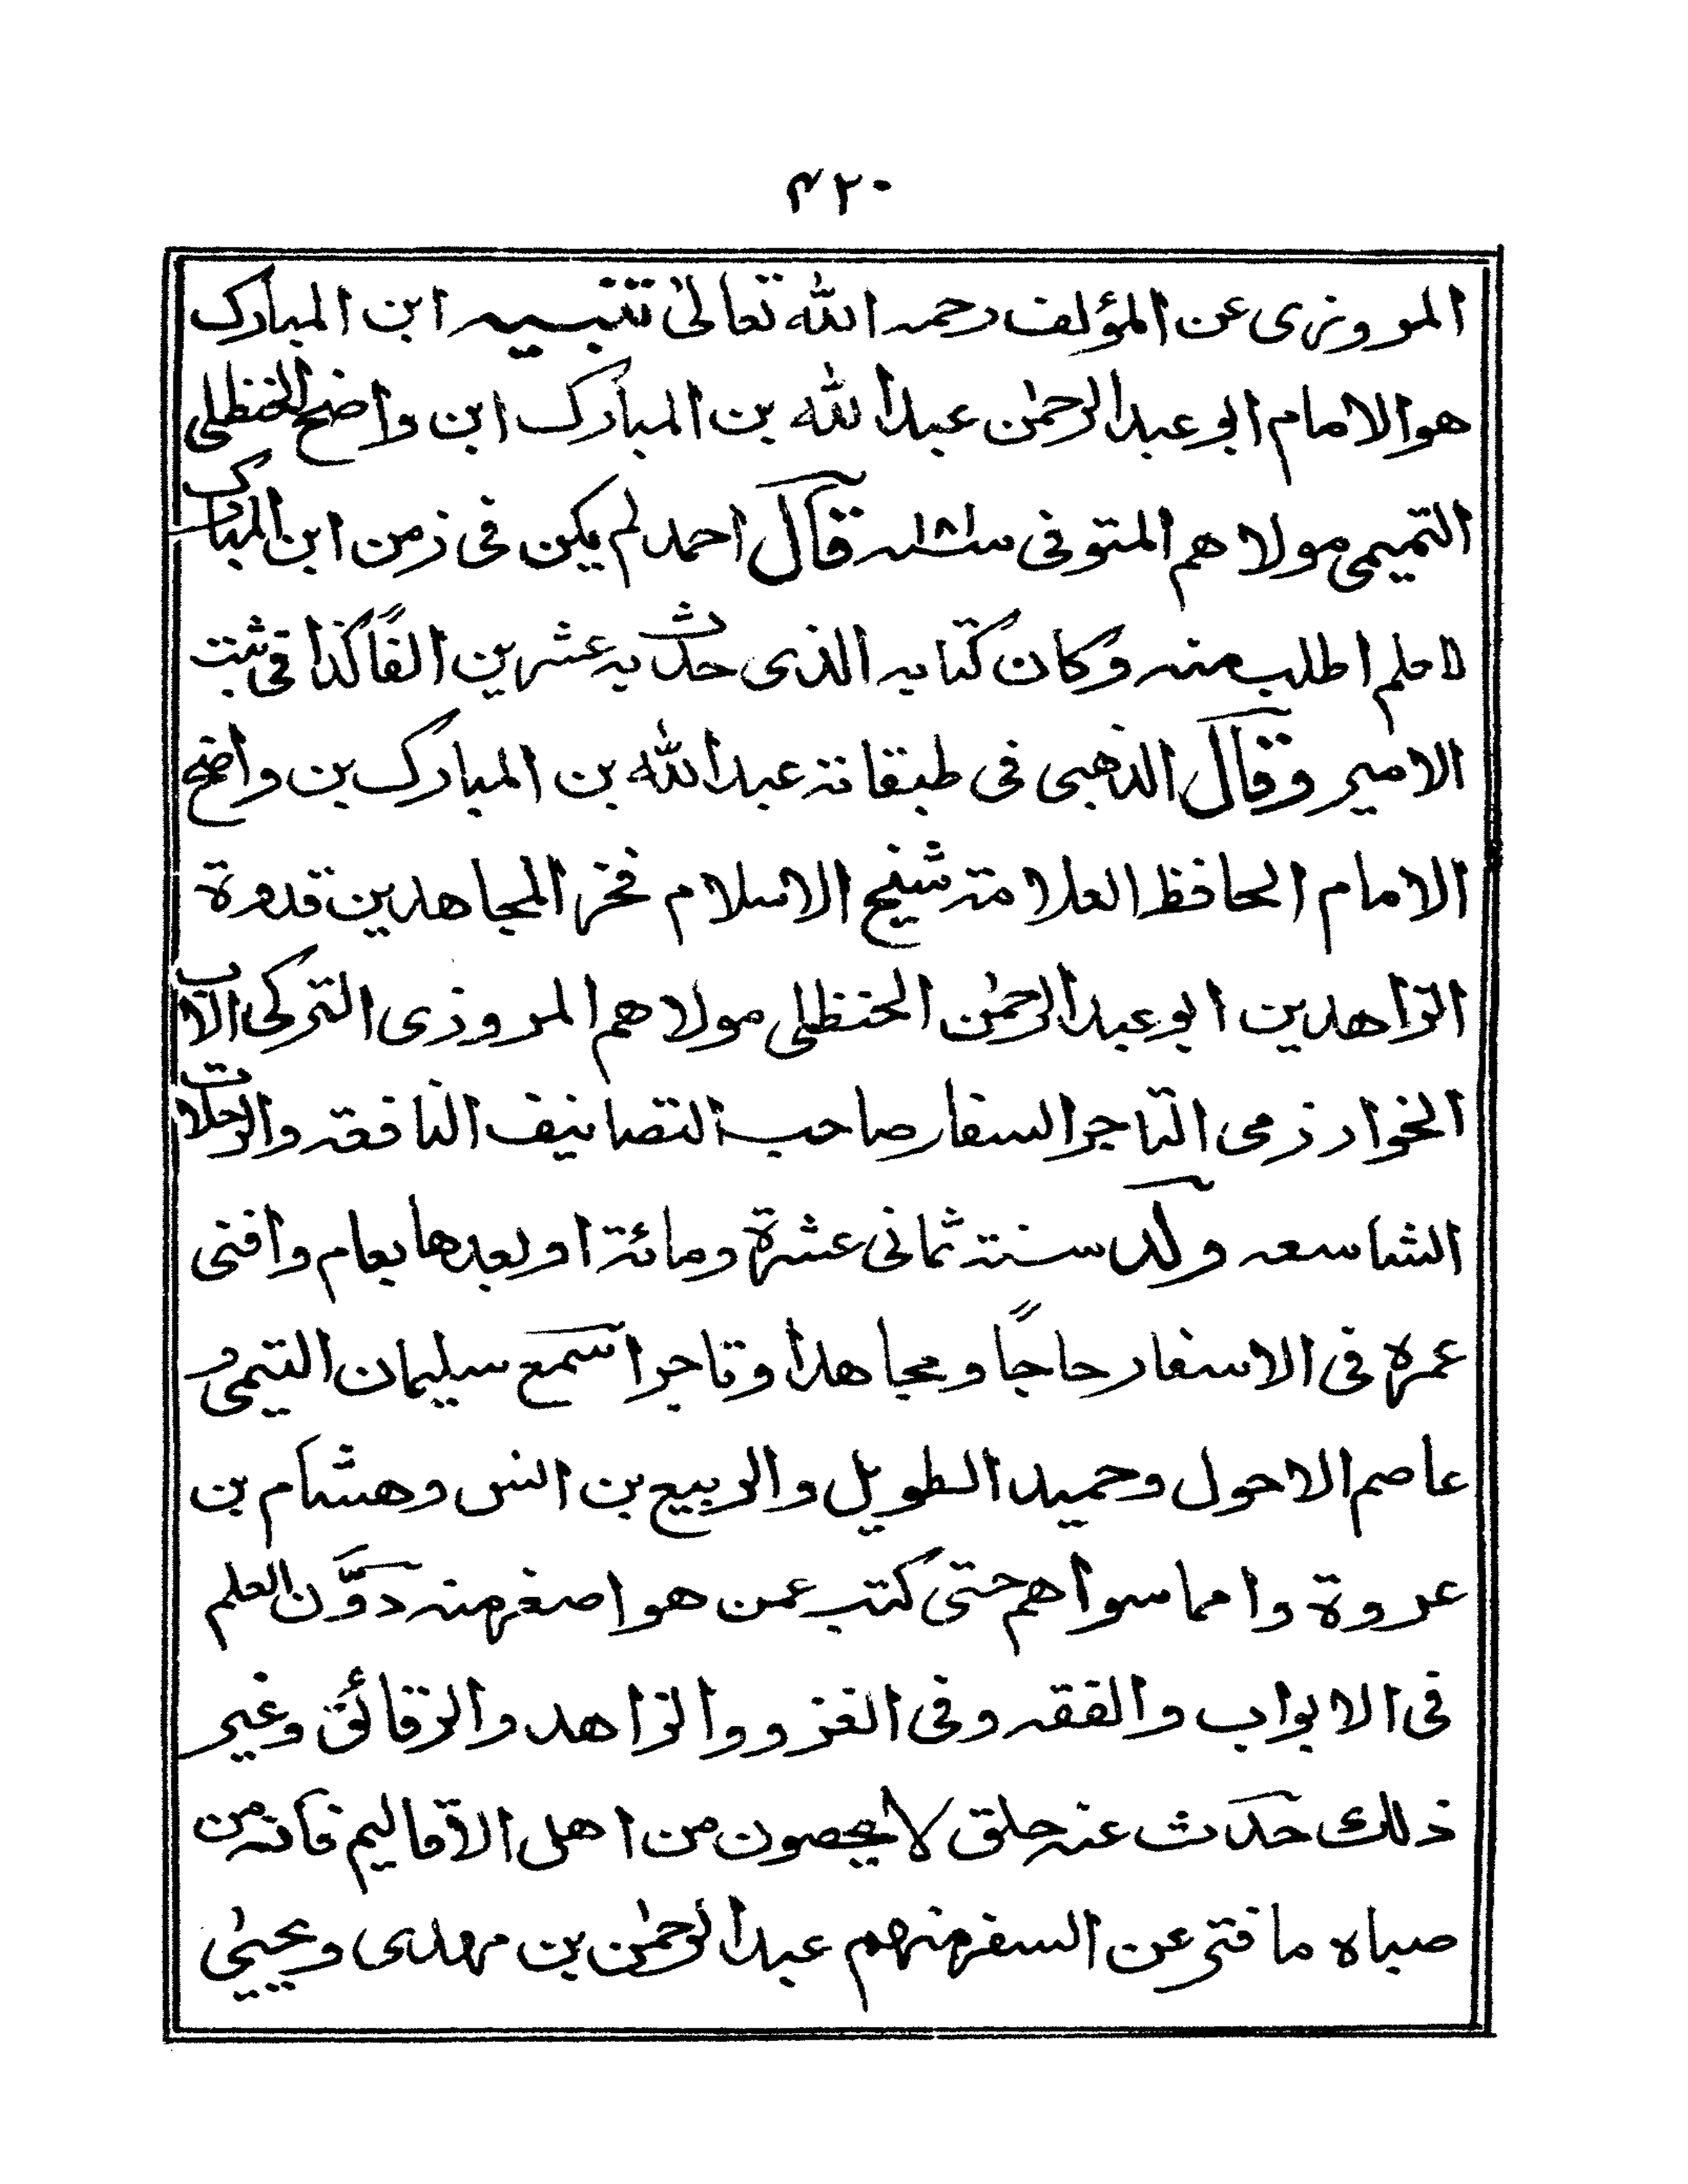 ۴۲۰
المروزی عن المؤلف رحمه الله تعالیٰ تنبیه ابن المبارک
هو الامام ابو عبد الرحمٰن عبد الله بن المبارک ابن واضح الحنظلی
التمیمی مولاهم المتوفی سنة ۱۸۱ قال احمد لم یکن فی زمن ابن المبارک
لا علم اطلب منه و کان کتابه الذی حدث به عشرین الفًا کذا فی ثبت
الامیر وقال الذهبی فی طبقاته عبد الله بن المبارک بن واضح
الامام الحافظ العلامة شیخ الاسلام فخر المجاهدین قدوة
الزاهدین ابو عبد الرحمٰن الحنظلی مولاهم المروزی الترکی الاب
الخوارزمی التاجر السفار صاحب التصانیف النافعة والرحلات
الشاسعه ولد سنة ثمانی عشرة ومائة او بعدها بعام وافنی
عمره فی الاسفار حاجًا ومجاهدا وتاجرا سمع سلیمان التیمی و
عاصم الاحول وحمید الطویل والربیع بن انس وهشام بن
عروة وامما سواهم حتی کتب عمن هو اصغر منه دوَّن العلم
فی الابواب والفقه وفی الغزو والزاهد والرقائق وغیر
ذلك حدث عنه خلق لا یحصون من اهل الاقالیم فانه من
صباه ما فتر عن السفر منهم عبد الرحمٰن بن مهدی ویحییٰ